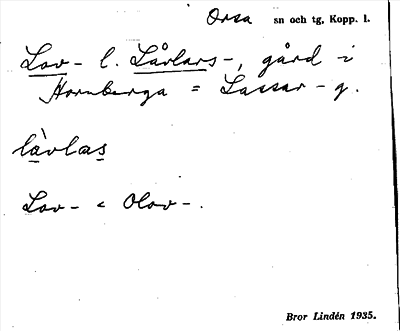 Orsa sn och tg, Kopp. l.
Lov- l. Låvlars-, gård i
Hornberga = Lassar-g.
làvlas
Lov- < Olov-.
Bror Lindén 1935.